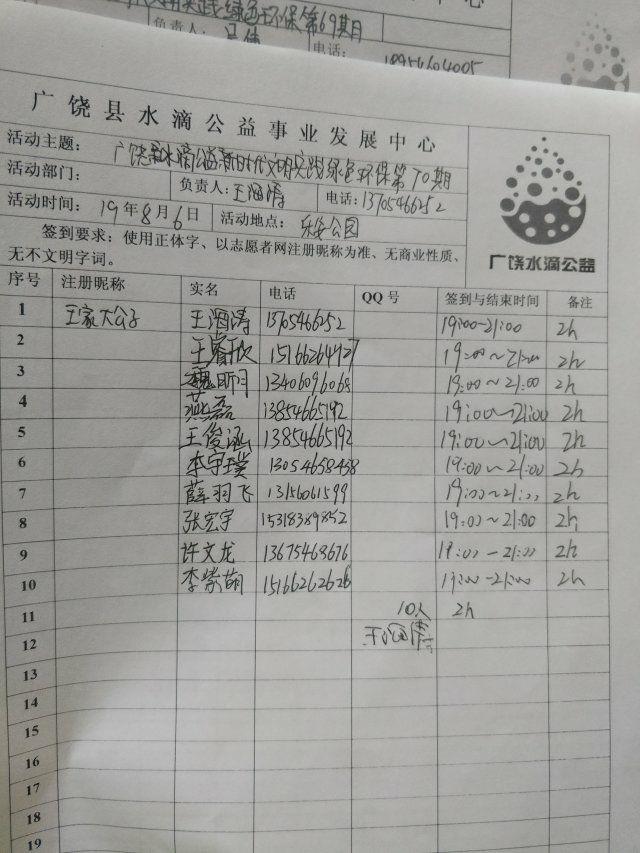 绿色环保第69期
负责人:
电话: 18954604005
广饶县水滴公益事业发展中心
活动主题: 广饶县水滴公益新时代文明实践绿色环保第70期
活动部门: 负责人: 王海涛 电话: 13705466252
活动时间: 19年8月6日 活动地点: 乐安公园
签到要求: 使用正体字、以志愿者网注册昵称为准、无商业性质、
无不文明字词。
广饶水滴公益
序号 注册昵称 实名 电话 QQ号 签到与结束时间 备注
1 王家大公子 王海涛 13705466252 19:00-21:00 2h
2 王睿欣 15166264927 19:00~21:00 2h
3 魏明月 13406096068 19:00~21:00 2h
4 燕磊 13854665192 19:00~21:00 2h
5 王俊涵 13854665192 19:00~21:00 2h
6 李宇璞 13054658458 19:00~21:00 2h
7 薛羽飞 13156061599 19:00~21:00 2h
8 张宏宇 15318389852 19:00~21:00 2h
9 许文龙 13675468676 19:00-21:00 2h
10 李紫萌 15166262626 19:00-21:00 2h
11 10人 2h
12 王海涛
13
14
15
16
17
18
19